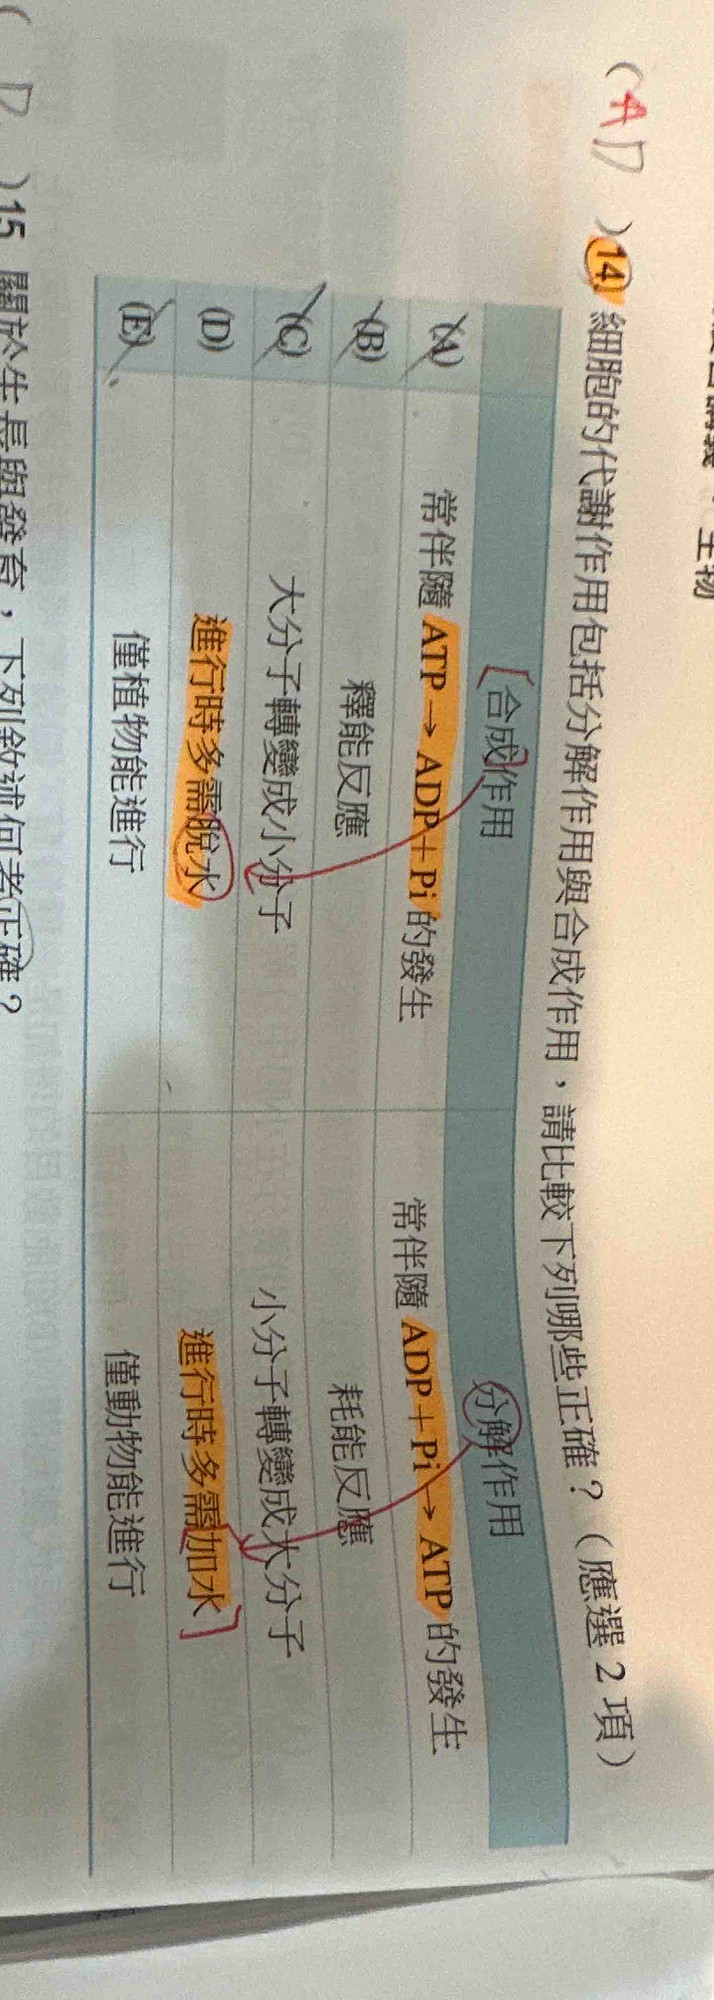 生物
(AD)14. 細胞的代謝作用包括分解作用與合成作用，請比較下列哪些正確？（應選 2 項）
合成作用 分解作用
(A) 常伴隨 ATP → ADP + Pi 的發生 常伴隨 ADP + Pi → ATP 的發生
(B) 釋能反應 耗能反應
(C) 大分子轉變成小分子 小分子轉變成大分子
(D) 進行時多需脫水 進行時多需加水
(E) 僅植物能進行 僅動物能進行
( D )15. 關於生長與發育，下列敘述何者正確？